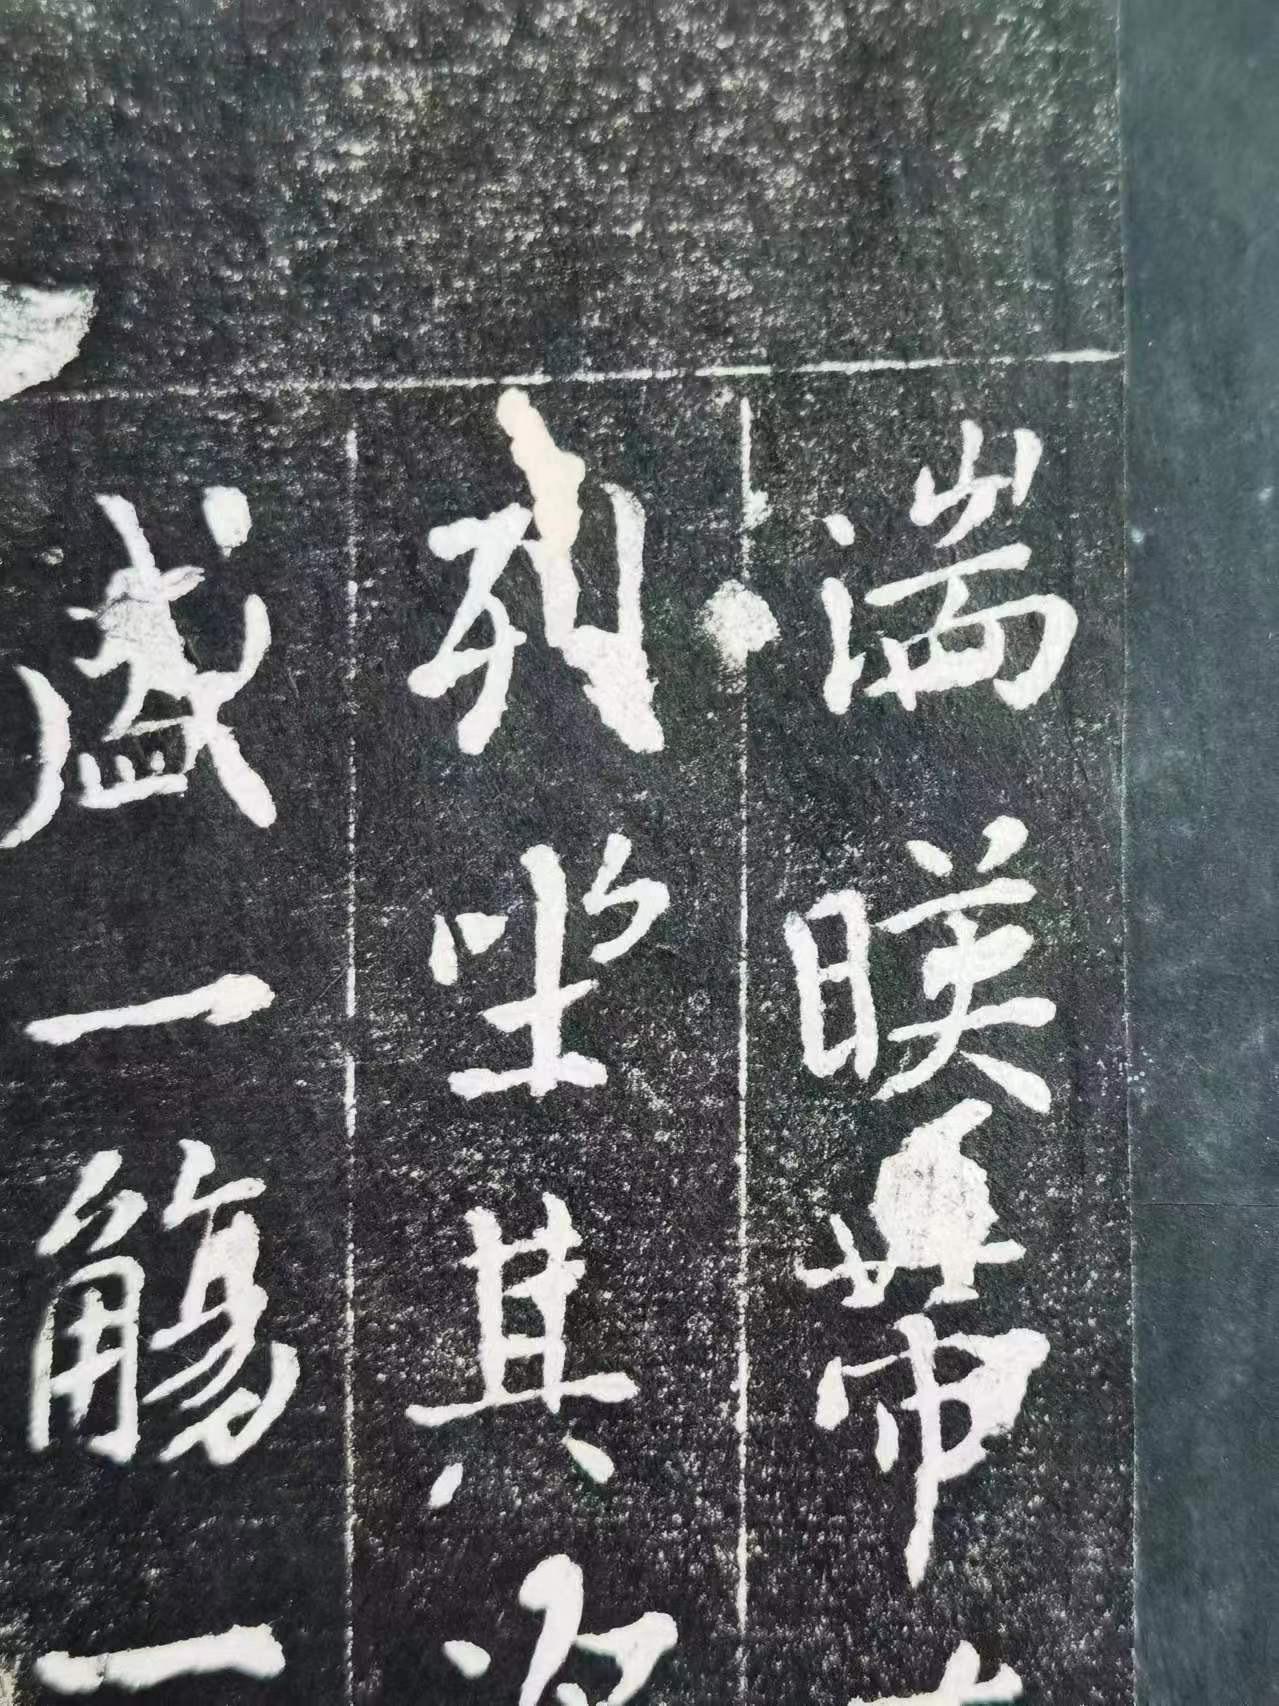 湍暎帶
列坐其次
盛一觴一